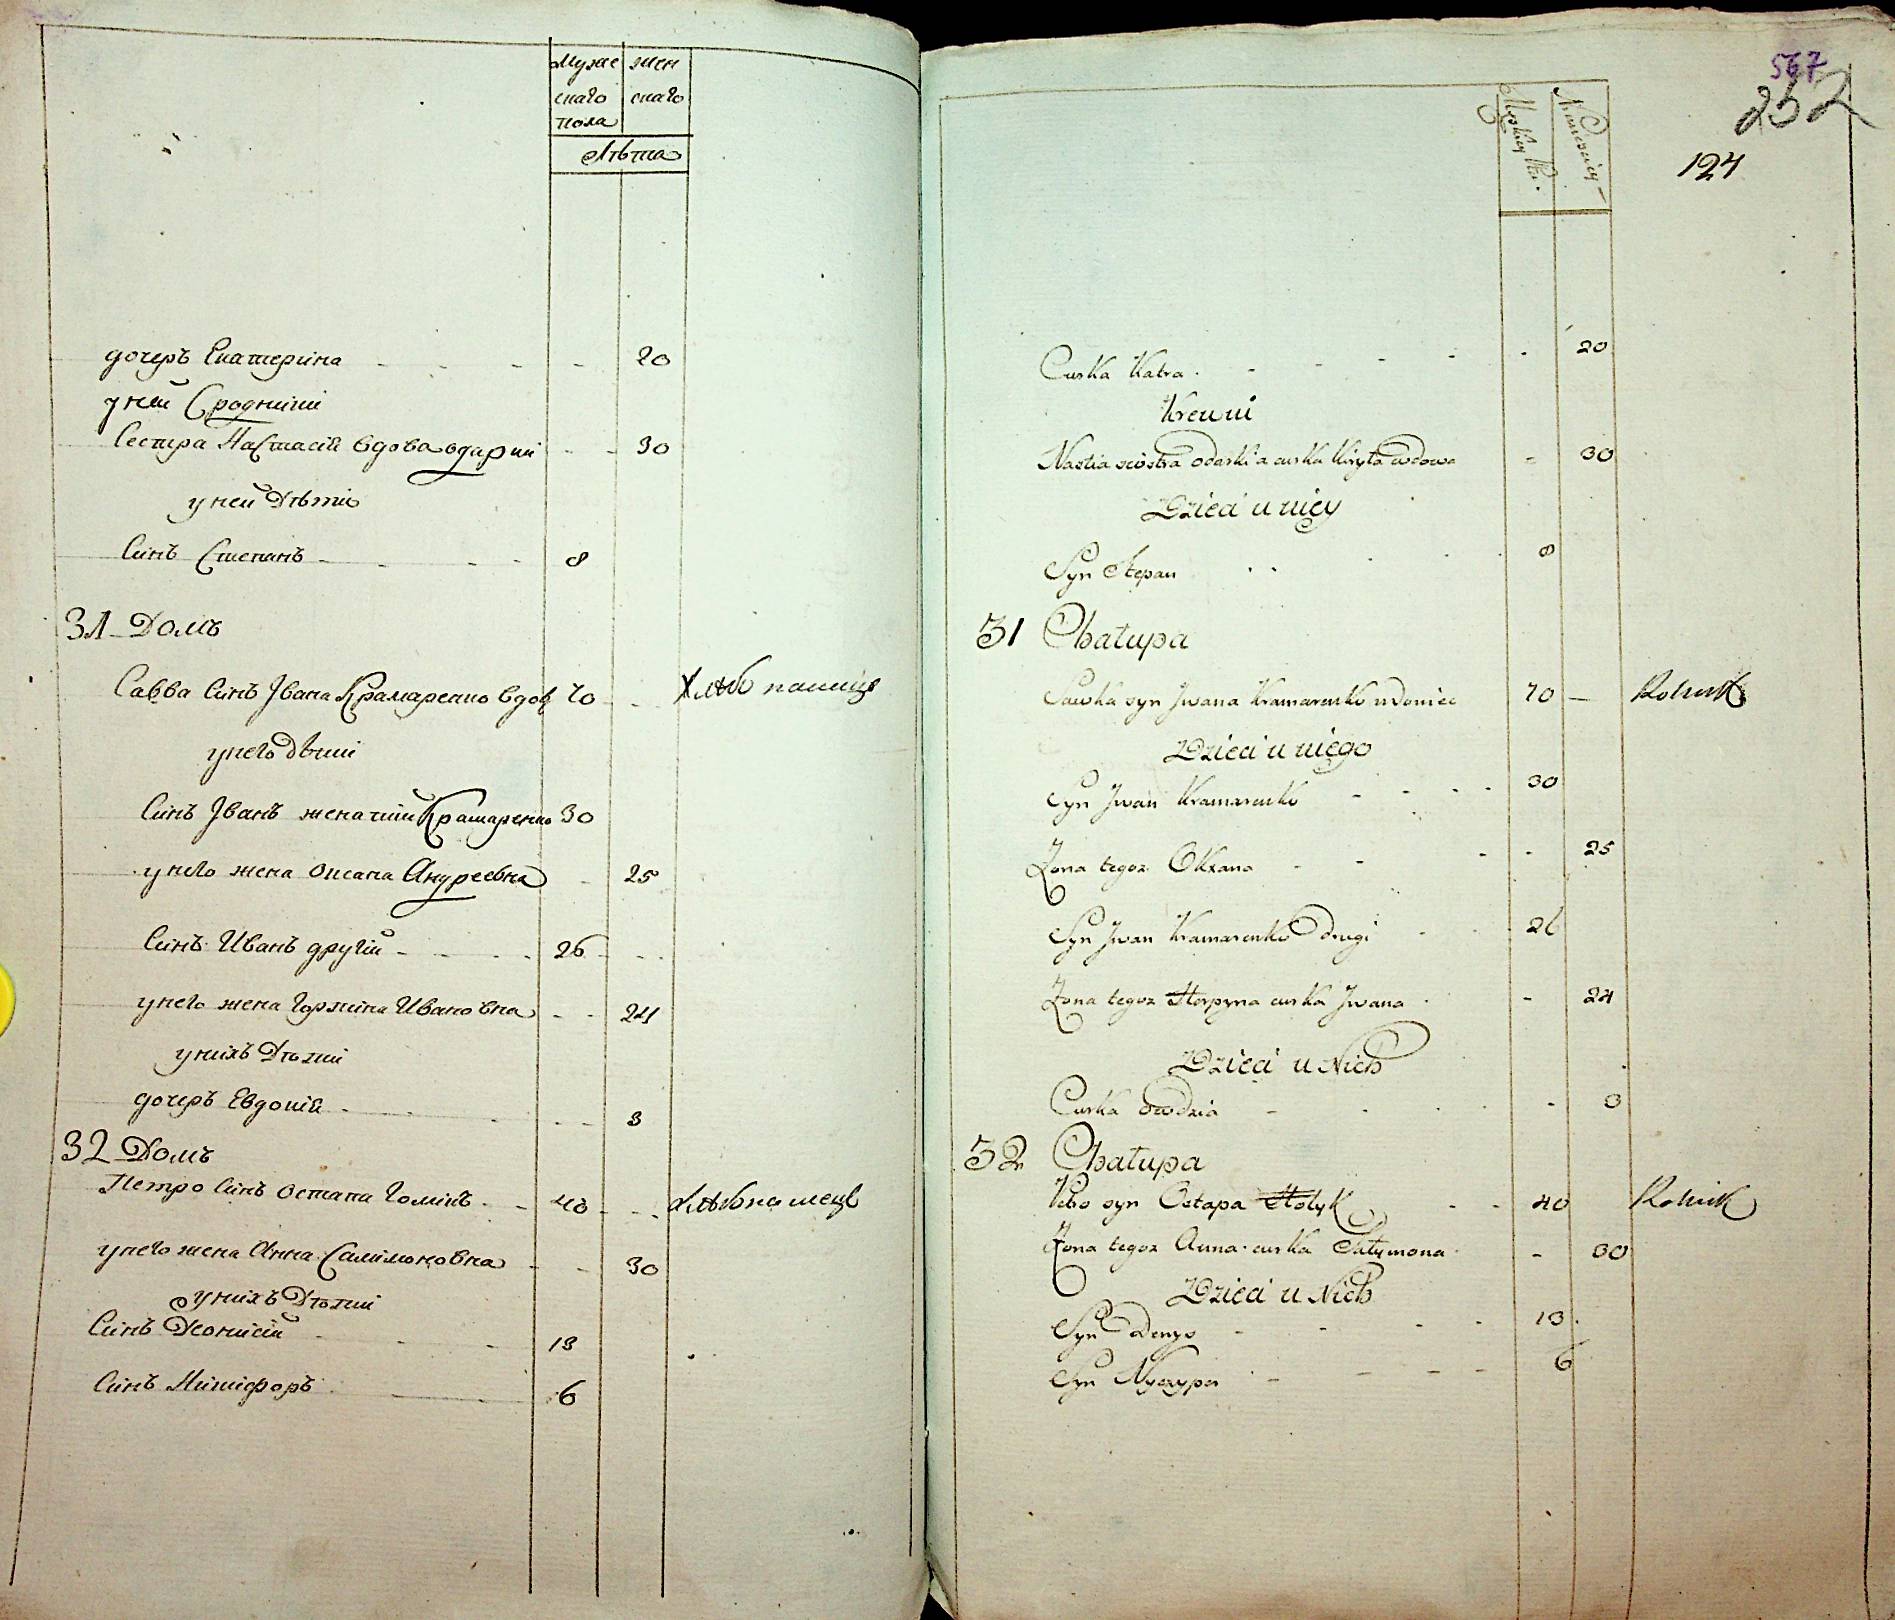 Муже жен
скаго скаго
пола
Лѣта
дочеръ Екатерина 20
у ней Сродники
Сестра Настасия вдова одарки 30
у ней Дѣти
Синъ Степанъ 8
31 Домъ
Савва Синъ Івана Крамаренко вдов 70 хлѣбопашец
у него дѣти
Синъ Іванъ женатий Крамаренко 30
у него жена Оксана Андреевна 25
Синъ Иванъ другий 26
у него жена Горпина Ивановна 24
у нихъ Дѣти
дочеръ Евдокия 3
32 Домъ
Петро Синъ Остапа Голикъ 40 хлѣбопашец
у него жена Анна Салимоновна 30
у нихъ Дѣти
Синъ Деонисий 13
Синъ Никифоръ 6
567
252
124
Męskiey Pł.
Niewieściey
Curka Katra 20
Krewni
Nastia siostra Odarki a curka Kiryła wdowa 30
Dzieci u niey
Syn Stepan 8
31 Chałupa
Sawka syn Jwana Kramarenko wdowiec 70 Rolnik
Dzieci u niego
Syn Jwan Kramarenko 30
Zona tegoz Oksana 25
Syn Jwan Kramarenko drugi 26
Zona tegoz Horpyna curka Jwana 24
Dzieci u Nich
Curka Owdzia 3
32 Chałupa
Petro syn Ostapa Hołyk 40 Rolnik
Zona tegoz Anna curka Sałymona 30
Dzieci u Nich
Syn Denys 13
Syn Nyczypor 6